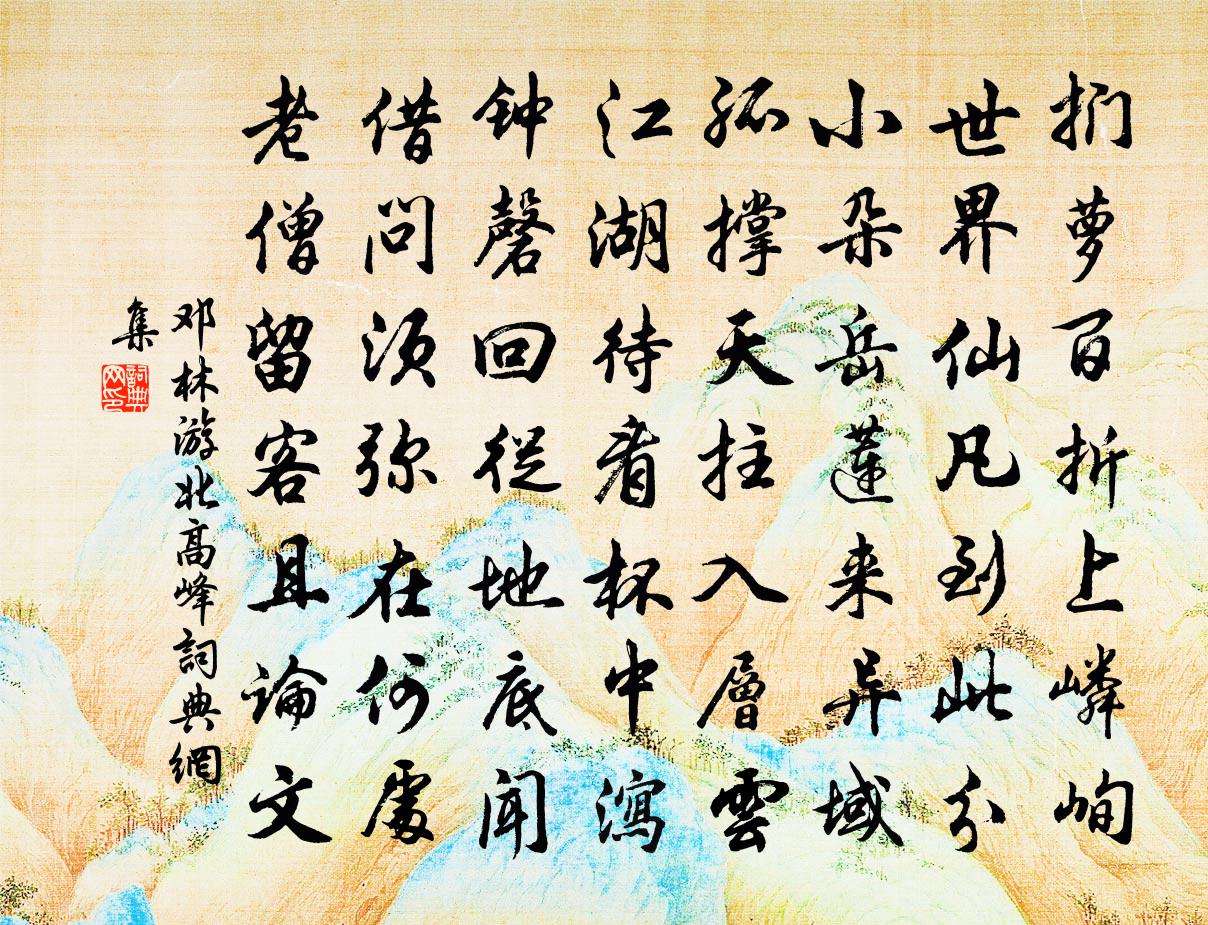 扪萝百折上嶙峋
世界仙凡到此分
小朵岳蓮来异域
孤撑天拄入層雲
江湖待看杯中瀉
钟磬回從地底闻
借问须弥在何處
老僧留客且論文
邓林游北高峰詞典網
集
詞典
网印